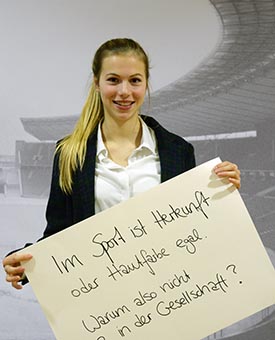 Im Sport ist Herkunft
oder Hautfabe egal.
Warum also nicht
in der Gesellschaft?